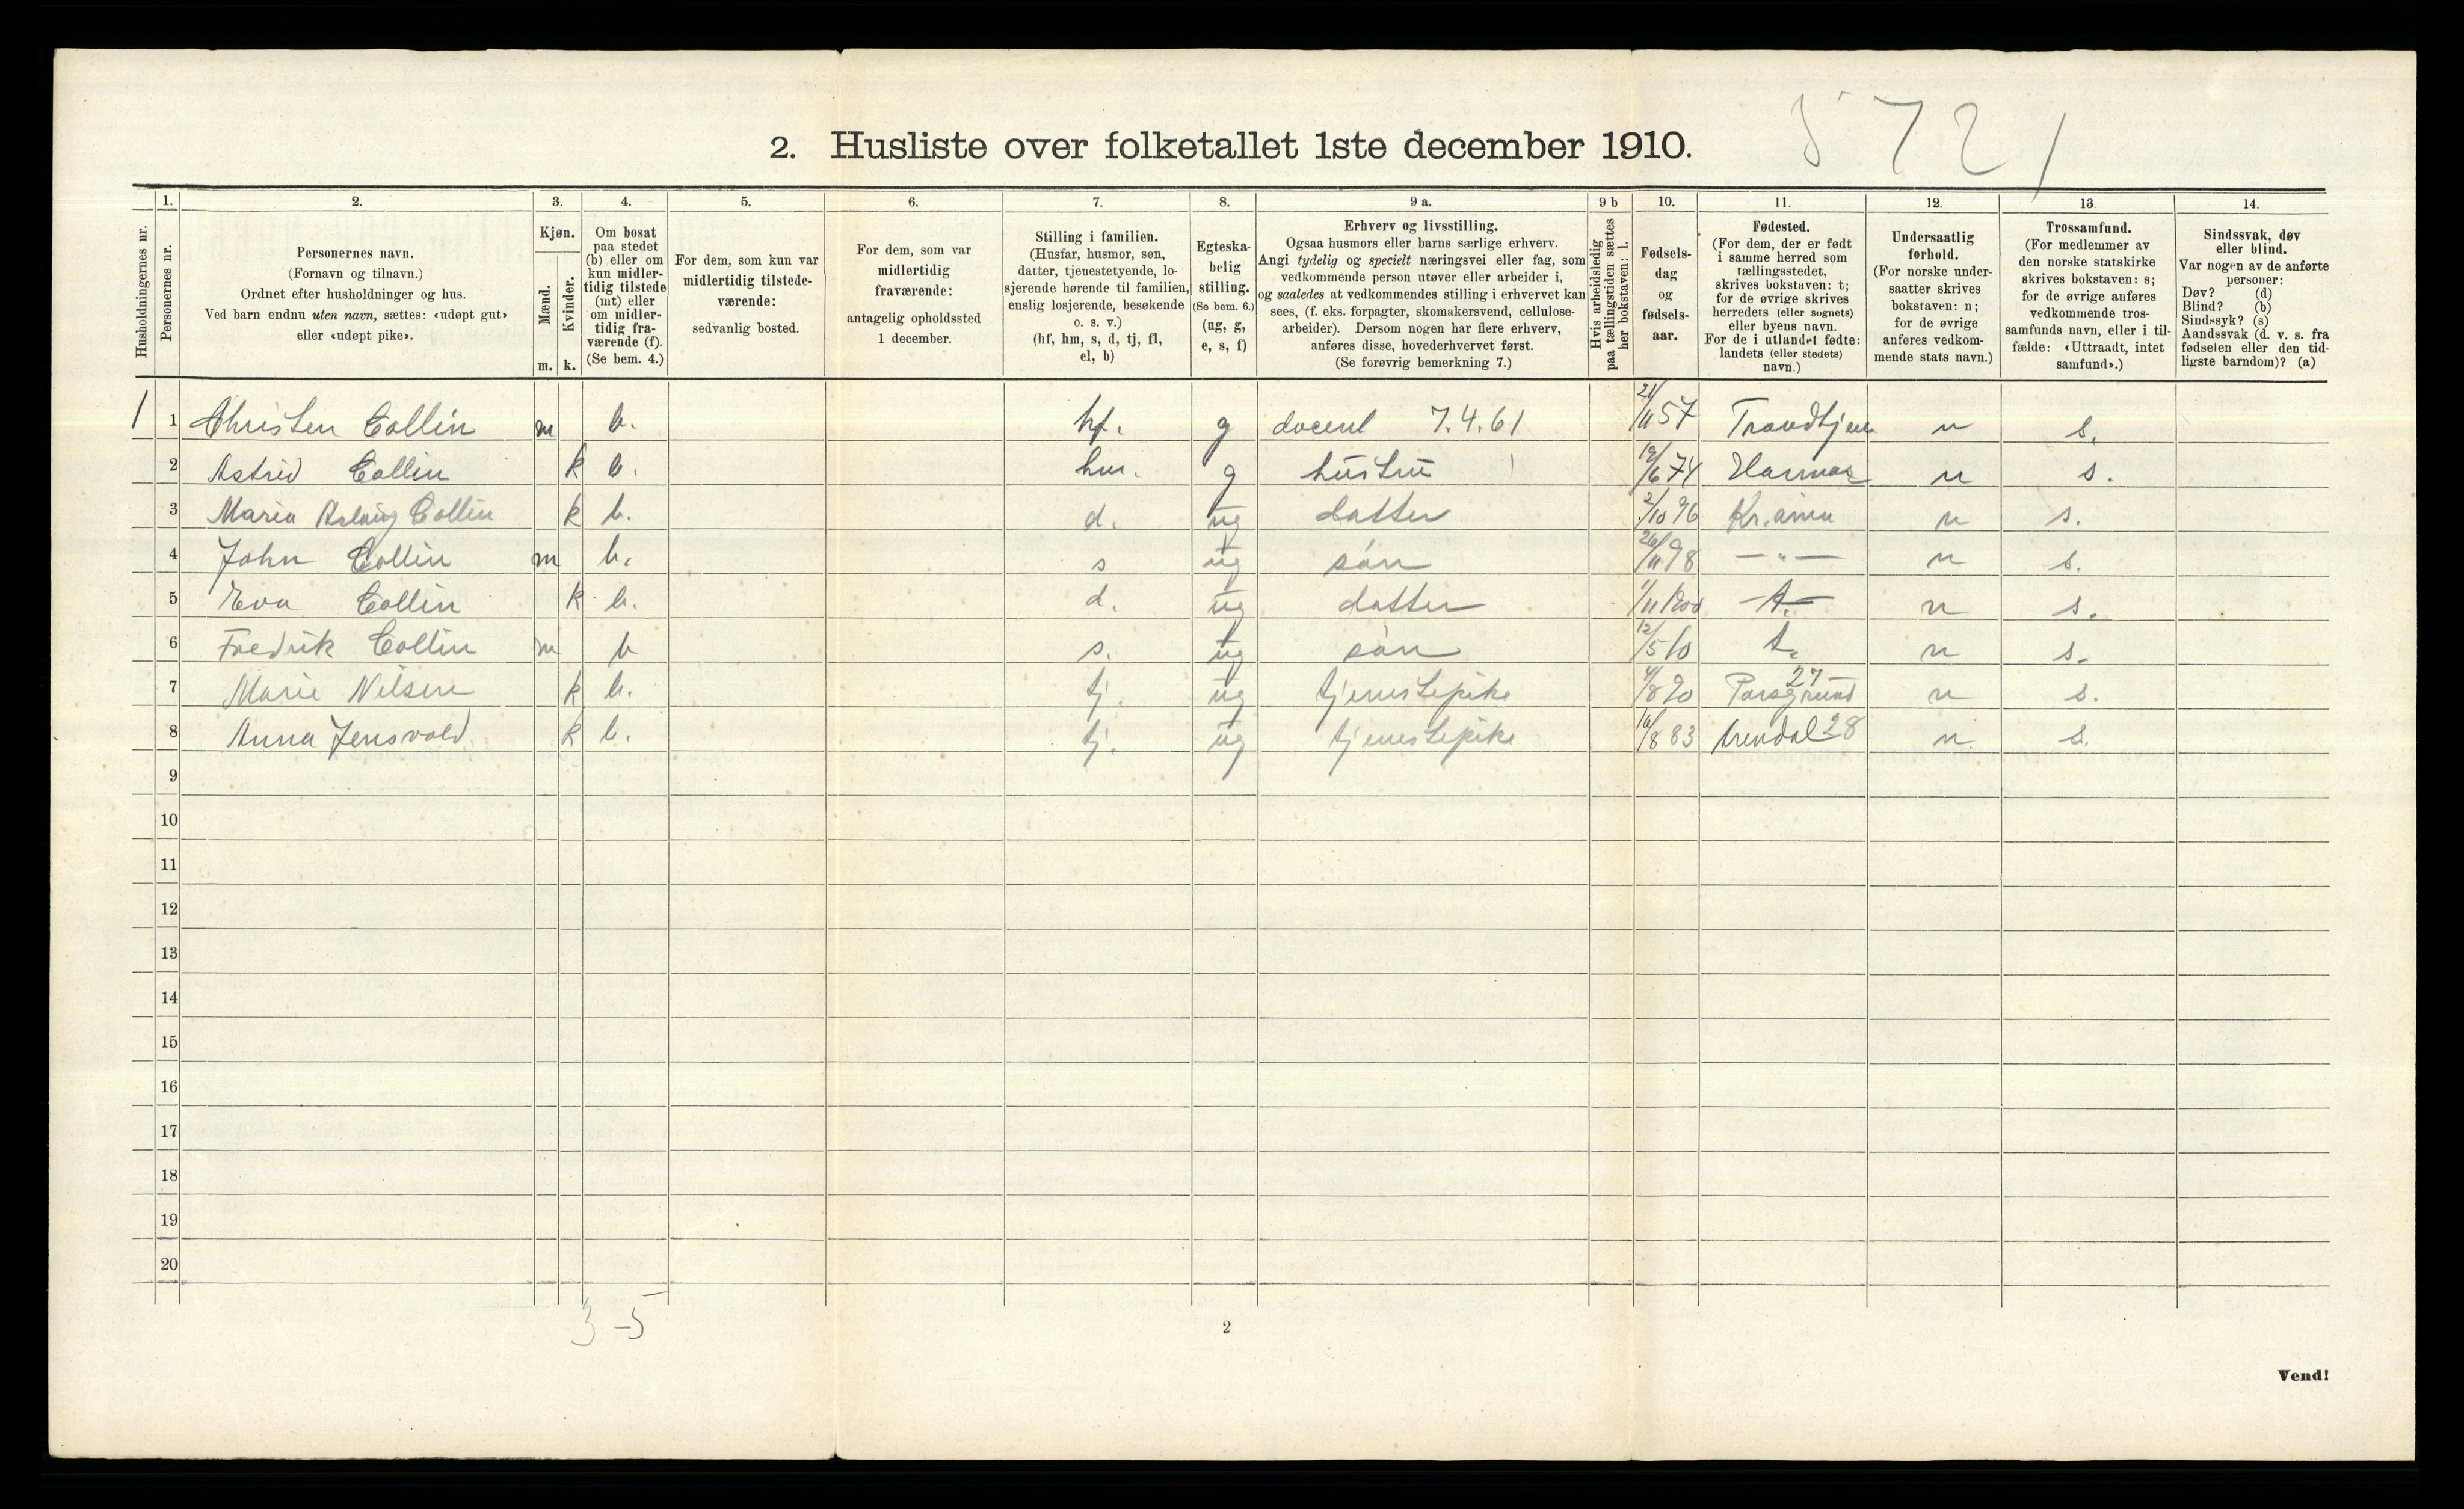 5721
2. Husliste over folketallet 1ste december 1910.
Husholdningernes nr.
1. Personernes nr.
2. Personernes navn.
(Fornavn og tilnavn.)
Ordnet efter husholdninger og hus.
Ved barn endnu uten navn, sættes: «udøpt gut»
eller «udøpt pike».
3. Kjøn.
Mænd. m.
Kvinder. k.
4. Om bosat
paa stedet
(b) eller om
kun midler-
tidig tilstede
(mt) eller
om midler-
tidig fra-
værende (f).
(Se bem. 4.)
5. For dem, som kun var
midlertidig tilstede-
værende:
sedvanlig bosted.
6. For dem, som var
midlertidig
fraværende:
antagelig opholdssted
1 december.
7. Stilling i familien.
(Husfar, husmor, søn,
datter, tjenestetyende, lo-
sjerende hørende til familien,
enslig losjerende, besøkende
o. s. v.)
(hf, hm, s, d, tj, fl,
el, b)
8. Egteska-
belig
stilling.
(Se bem. 6.)
(ug, g,
e, s, f)
9 a. Erhverv og livsstilling.
Ogsaa husmors eller barns særlige erhverv.
Angi tydelig og specielt næringsvei eller fag, som
vedkommende person utøver eller arbeider i,
og saaledes at vedkommendes stilling i erhvervet kan
sees, (f. eks. forpagter, skomakersvend, cellulose-
arbeider). Dersom nogen har flere erhverv,
anføres disse, hovederhvervet først.
(Se forøvrig bemerkning 7.)
9 b Hvis arbeidsledig
paa tællingstiden sættes
her bokstaven: l.
10. Fødsels-
dag
og
fødsels-
aar.
11. Fødested.
(For dem, der er født
i samme herred som
tællingsstedet,
skrives bokstaven: t;
for de øvrige skrives
herredets (eller sognets)
eller byens navn.
For de i utlandet fødte:
landets (eller stedets)
navn.)
12. Undersaatlig
forhold.
(For norske under-
saatter skrives
bokstaven: n;
for de øvrige
anføres vedkom-
mende stats navn.)
13. Trossamfund.
(For medlemmer av
den norske statskirke
skrives bokstaven: s;
for de øvrige anføres
vedkommende tros-
samfunds navn, eller i til-
fælde: «Uttraadt, intet
samfund».)
14. Sindssvak, døv
eller blind.
Var nogen av de anførte
personer:
Døv? (d)
Blind? (b)
Sindssyk? (s)
Aandssvak (d. v. s. fra
fødselen eller den tid-
ligste barndom)? (a)
1 1 Christen Collin m b. hf. g docent 7.4.61 21/11 57 Trondhjem n s.
2 Astrid Collin k b. hm. g hustru 19/6 74 Hamar n s.
3 Maria Aslaug Collin k b. d. ug datter 2/10 96 Kr.ania n s.
4 John Collin m b. s ug søn 26/11 98 — " — n s.
5 Eva Collin k b. d. ug datter 1/11 1900 t. n s.
6 Fredrik Collin m b s. ug søn 12/5 10 t. n s.
7 Marie Nilsen k b. tj. ug tjenestepike 4/8 90 Porsgrund 27 n s.
8 Anna Jensvold k b. tj. ug tjenestepike 16/8 83 Arendal 28 n. s.
9
10
11
12
13
14
15
16
17
18
19
20
3-5
2
Vend!